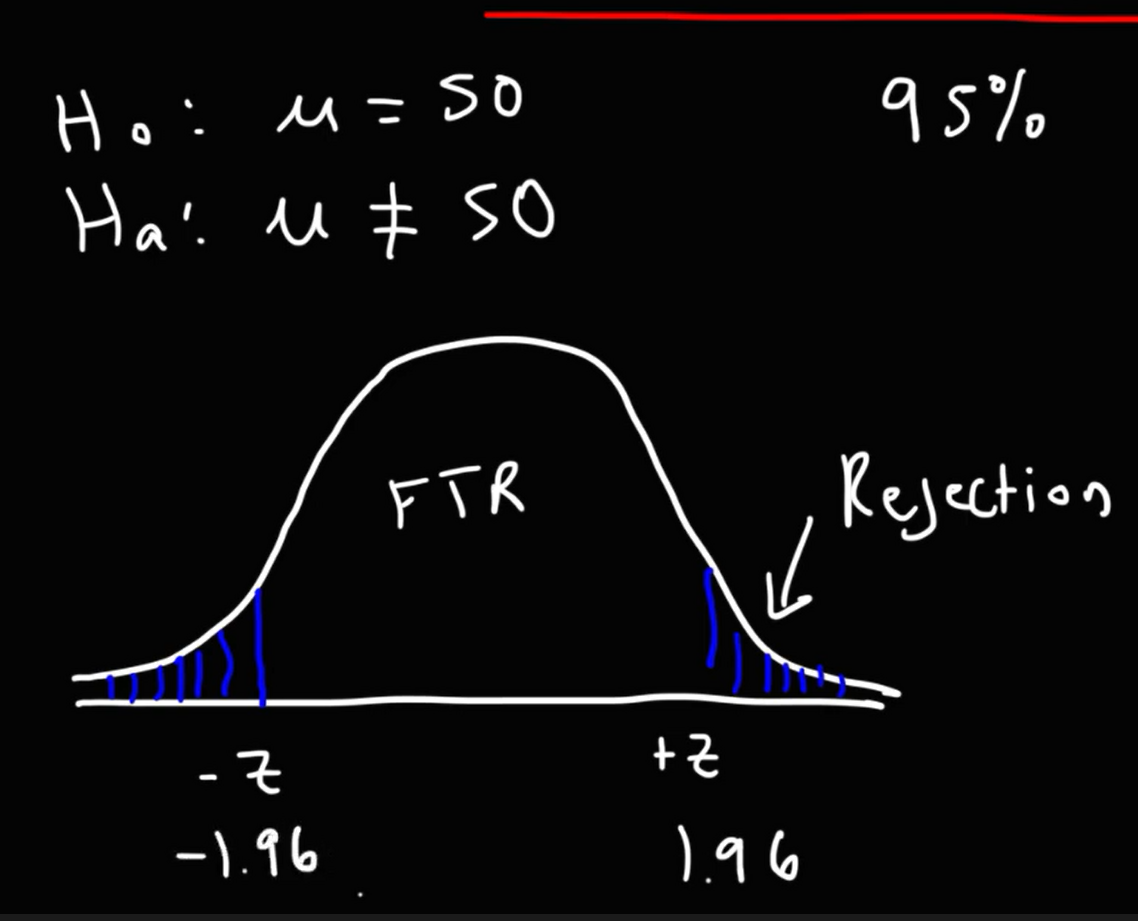 H₀: μ = 50
95%
Hₐ: μ ≠ 50
FTR
Rejection
-z
+z
-1.96
1.96